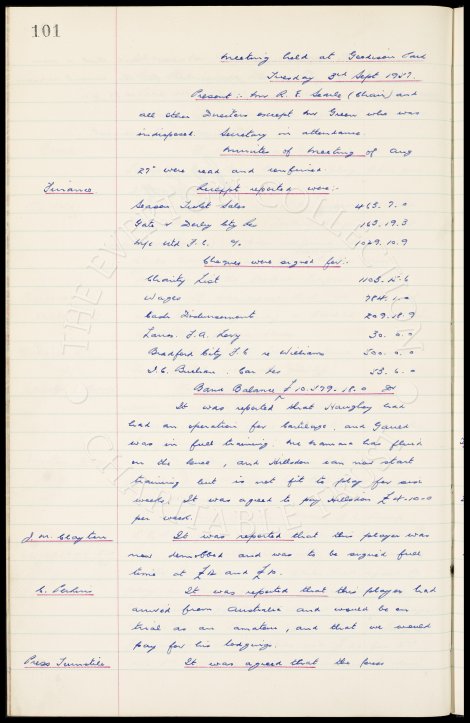 101
Meeting held at Goodison Park
Tuesday 3rd Sept 1957.
Present :- Mr R. E. Searle (Chair) and
all other Directors except Mr Green who was
indisposed. Secretary in attendance.
Minutes of Meeting of Aug
27th were read and confirmed.
Finance. Receipts reported were :-
Season Ticket Sales 463. 7. 0
Gate v Derby Cty 163. 19. 3
Utd F.C. % 1029. 10. 9
Cheques were signed for :-
Charity List 1105. 15. 6
Wages 784. 1. 0
Cash Disbursement 209. 18. 9
Lancs. F.A. Levy 30. 0. 0
Bradford City F.C. re Williams 500. 0. 0
I. C. Buchan. Car 53. 6. 0
Bank Balance £10,579. 18. 0 Dr
It was reported that Haughey had
had an operation for cartilage, and Gauld
was in full training. McNamara has fluid
on the knee, and Hillsdon can now start
training but is not fit to play for six
weeks. It was agreed to pay Hillsdon £4-10-0
per week.
J. M. Clayton It was reported that this player was
now demobbed and was to be signed full
time at and
C. Perkins It was reported that this player had
arrived from Australia and would be on
trial as an amateur, and that we would
pay for his lodgings.
Press Turnstile It was agreed that the press
THE EVERTON COLLECTION
CHARITABLE TRUST